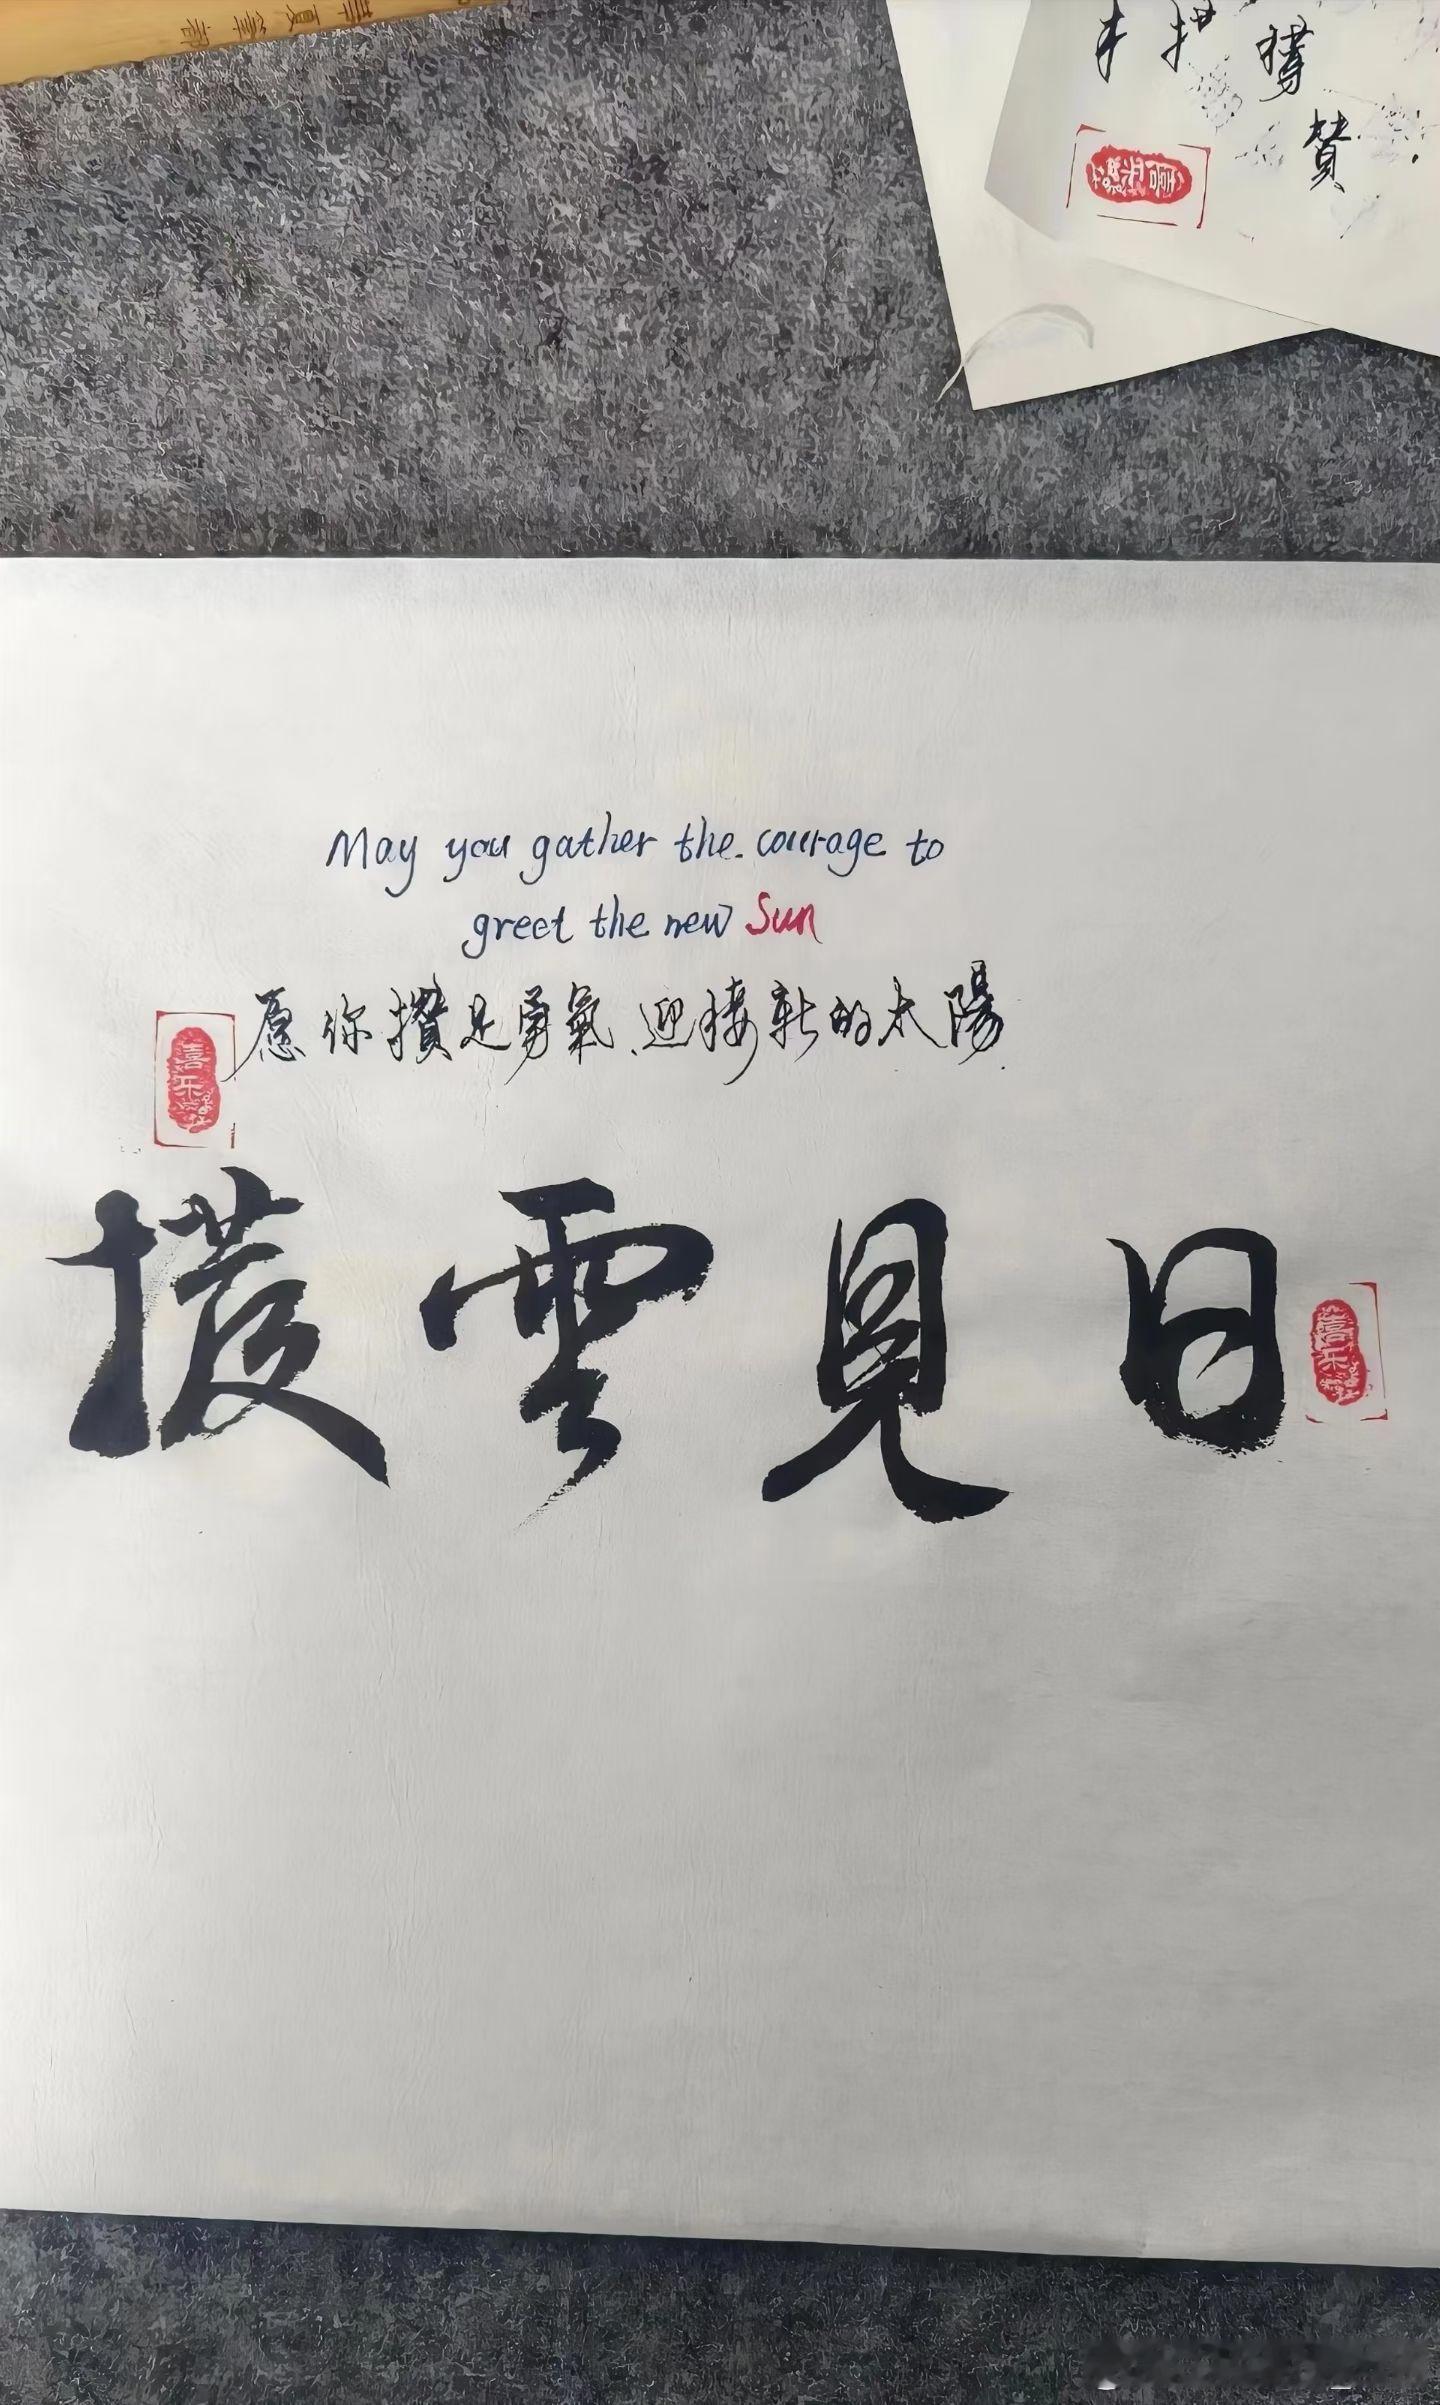 賛
May you gather the courage to
greet the new Sun
愿你攢足勇氣、迎接新的太陽
喜乐
撥雲見日
喜乐